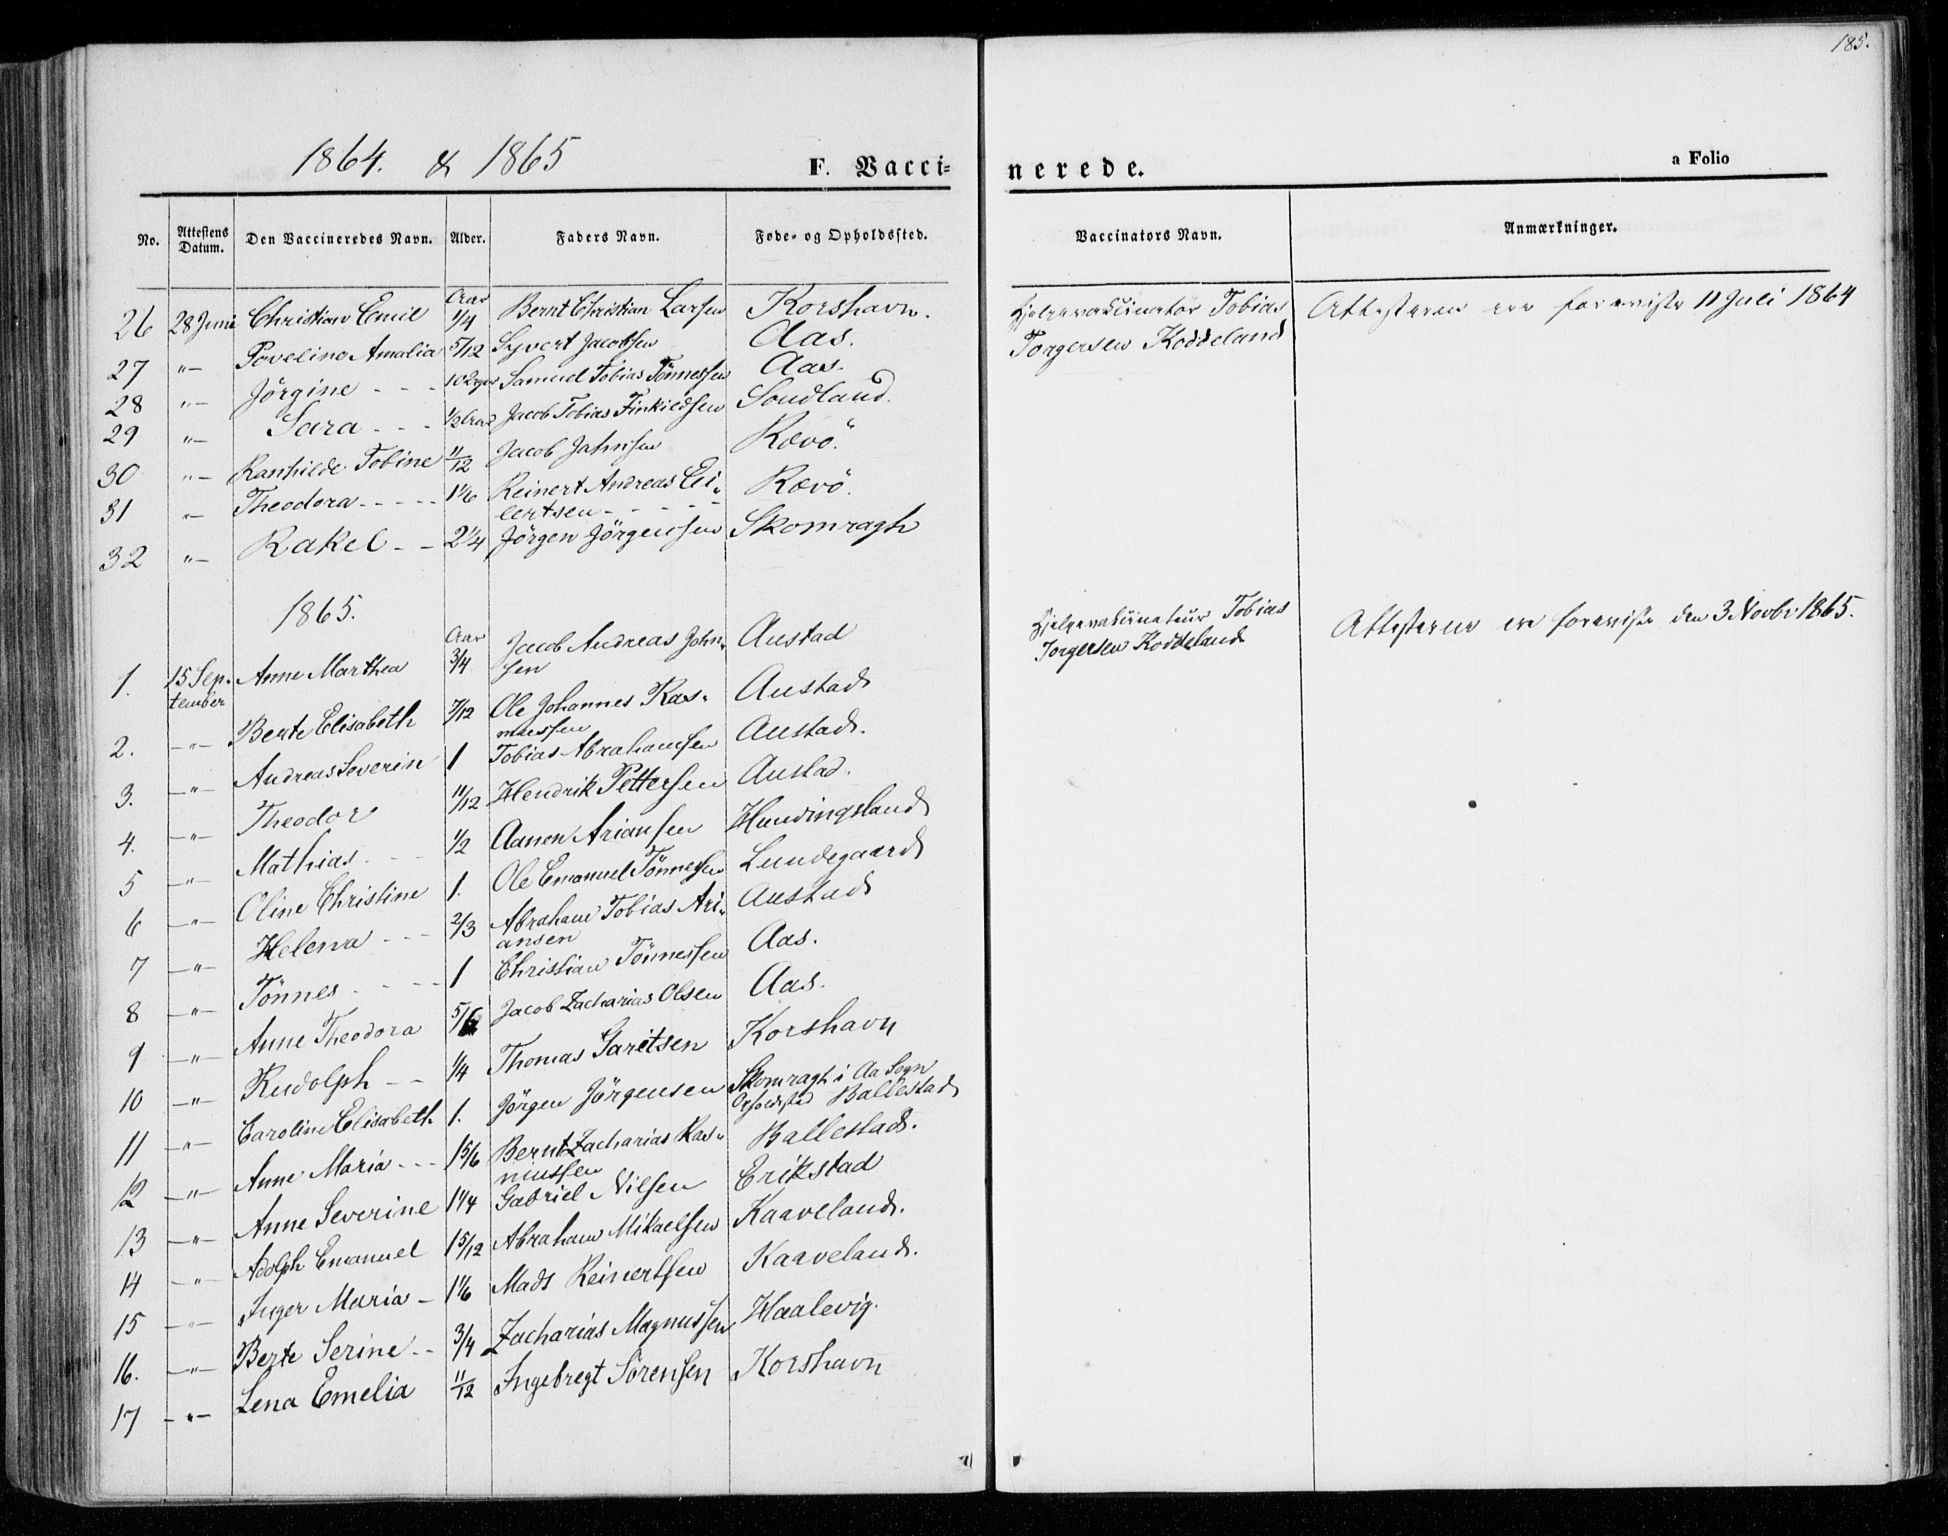 185.
1864. & 1865 F. Vacci= nerede. a Folio
No. Attestens Datum. Den Vaccineredes Navn. Alder. Faders Navn. Føde- og Opholdssted. Vaccinators Navn. Anmærkninger.
26 28 Juni Christian Emil Aar 1/4 Bernt Christian Larsen Korshavn. Hjelpevaccinator Tobias Torgersen Koddeland Attesterne ere foreviste 11 Juli 1864
27 "— Poveline Amalia 5/12 Syvert Jacobsen Aas.
28 "— Jörgine - - - 10 Samuel Tobias Tönnessen Aas.
29 "— Sara - - - 1/2 Aar Jacob Tobias Sondland.
30 "— Ranhilde Tobine 11/12 Jacob Jahnsen Rævö.
31 "— Theodora - - - - 1 1/6 Reinert Andreas Ei-
lertsen - - - - Rævö.
32 "— Rakel - - 2 1/4 Jörgen Jörgensen Skomragh
1865.
1. 15 Sep-
tember Anne Marthea Aar 3/4 Jacob Andreas John-
sen Austad Hjelpevaccinateur Tobias
Torgersen Koddeland Attesterne ere foreviste den 3 Novbr 1865.
2. —"— Berte Elisabeth 7/12 Ole Johannes Ras-
mussen Austad
3. —"— Andreas Severin 1 Tobias Abrahamsen Austad.
4. —"— Theodor 11/12 Hendrik Pettersen Austad.
5 —"— Mathias - - - 1/2 Aanen Ariansen Hunvingsland
6 —"— Oline Christine 1. Ole Emanuel Tönnessen Lundegaard
7 —"— Helena - - - 2/3 Abraham Tobias Ari-
ansen Austad
8 —"— Tönnes - - - - 1 Christian Tönnessen Aas.
9 —"— Anne Theodora 5/6 Jacob Zacharias Olsen Aas.
10 —"— Rudolph - - 1/4 Thomas Garitsen Korshavn
11 —"— Caroline Elisabeth 1. Jörgen Jörgensen Skomragh i Aa Sogn
Opholdsted Ballestad
12 —"— Anne Maria - - - 1 5/6 Bernt Zacharias Ras-
mussen Ballestad.
13 —"— Anne Severine 1 1/4 Gabriel Nilsen Erikstad
14 —"— Adolph Emanuel 1 5/12 Abraham Mikaelsen Kaaveland.
15 —"— Inger Maria - 1 1/6 Mads Reinertsen Kaaveland.
16. —"— Berte Serine - - 3/4 Zacharias Magnussen Haalevig.
17 —"— Lena Emelia 11/12 Ingebregt Sörensen Korshavn